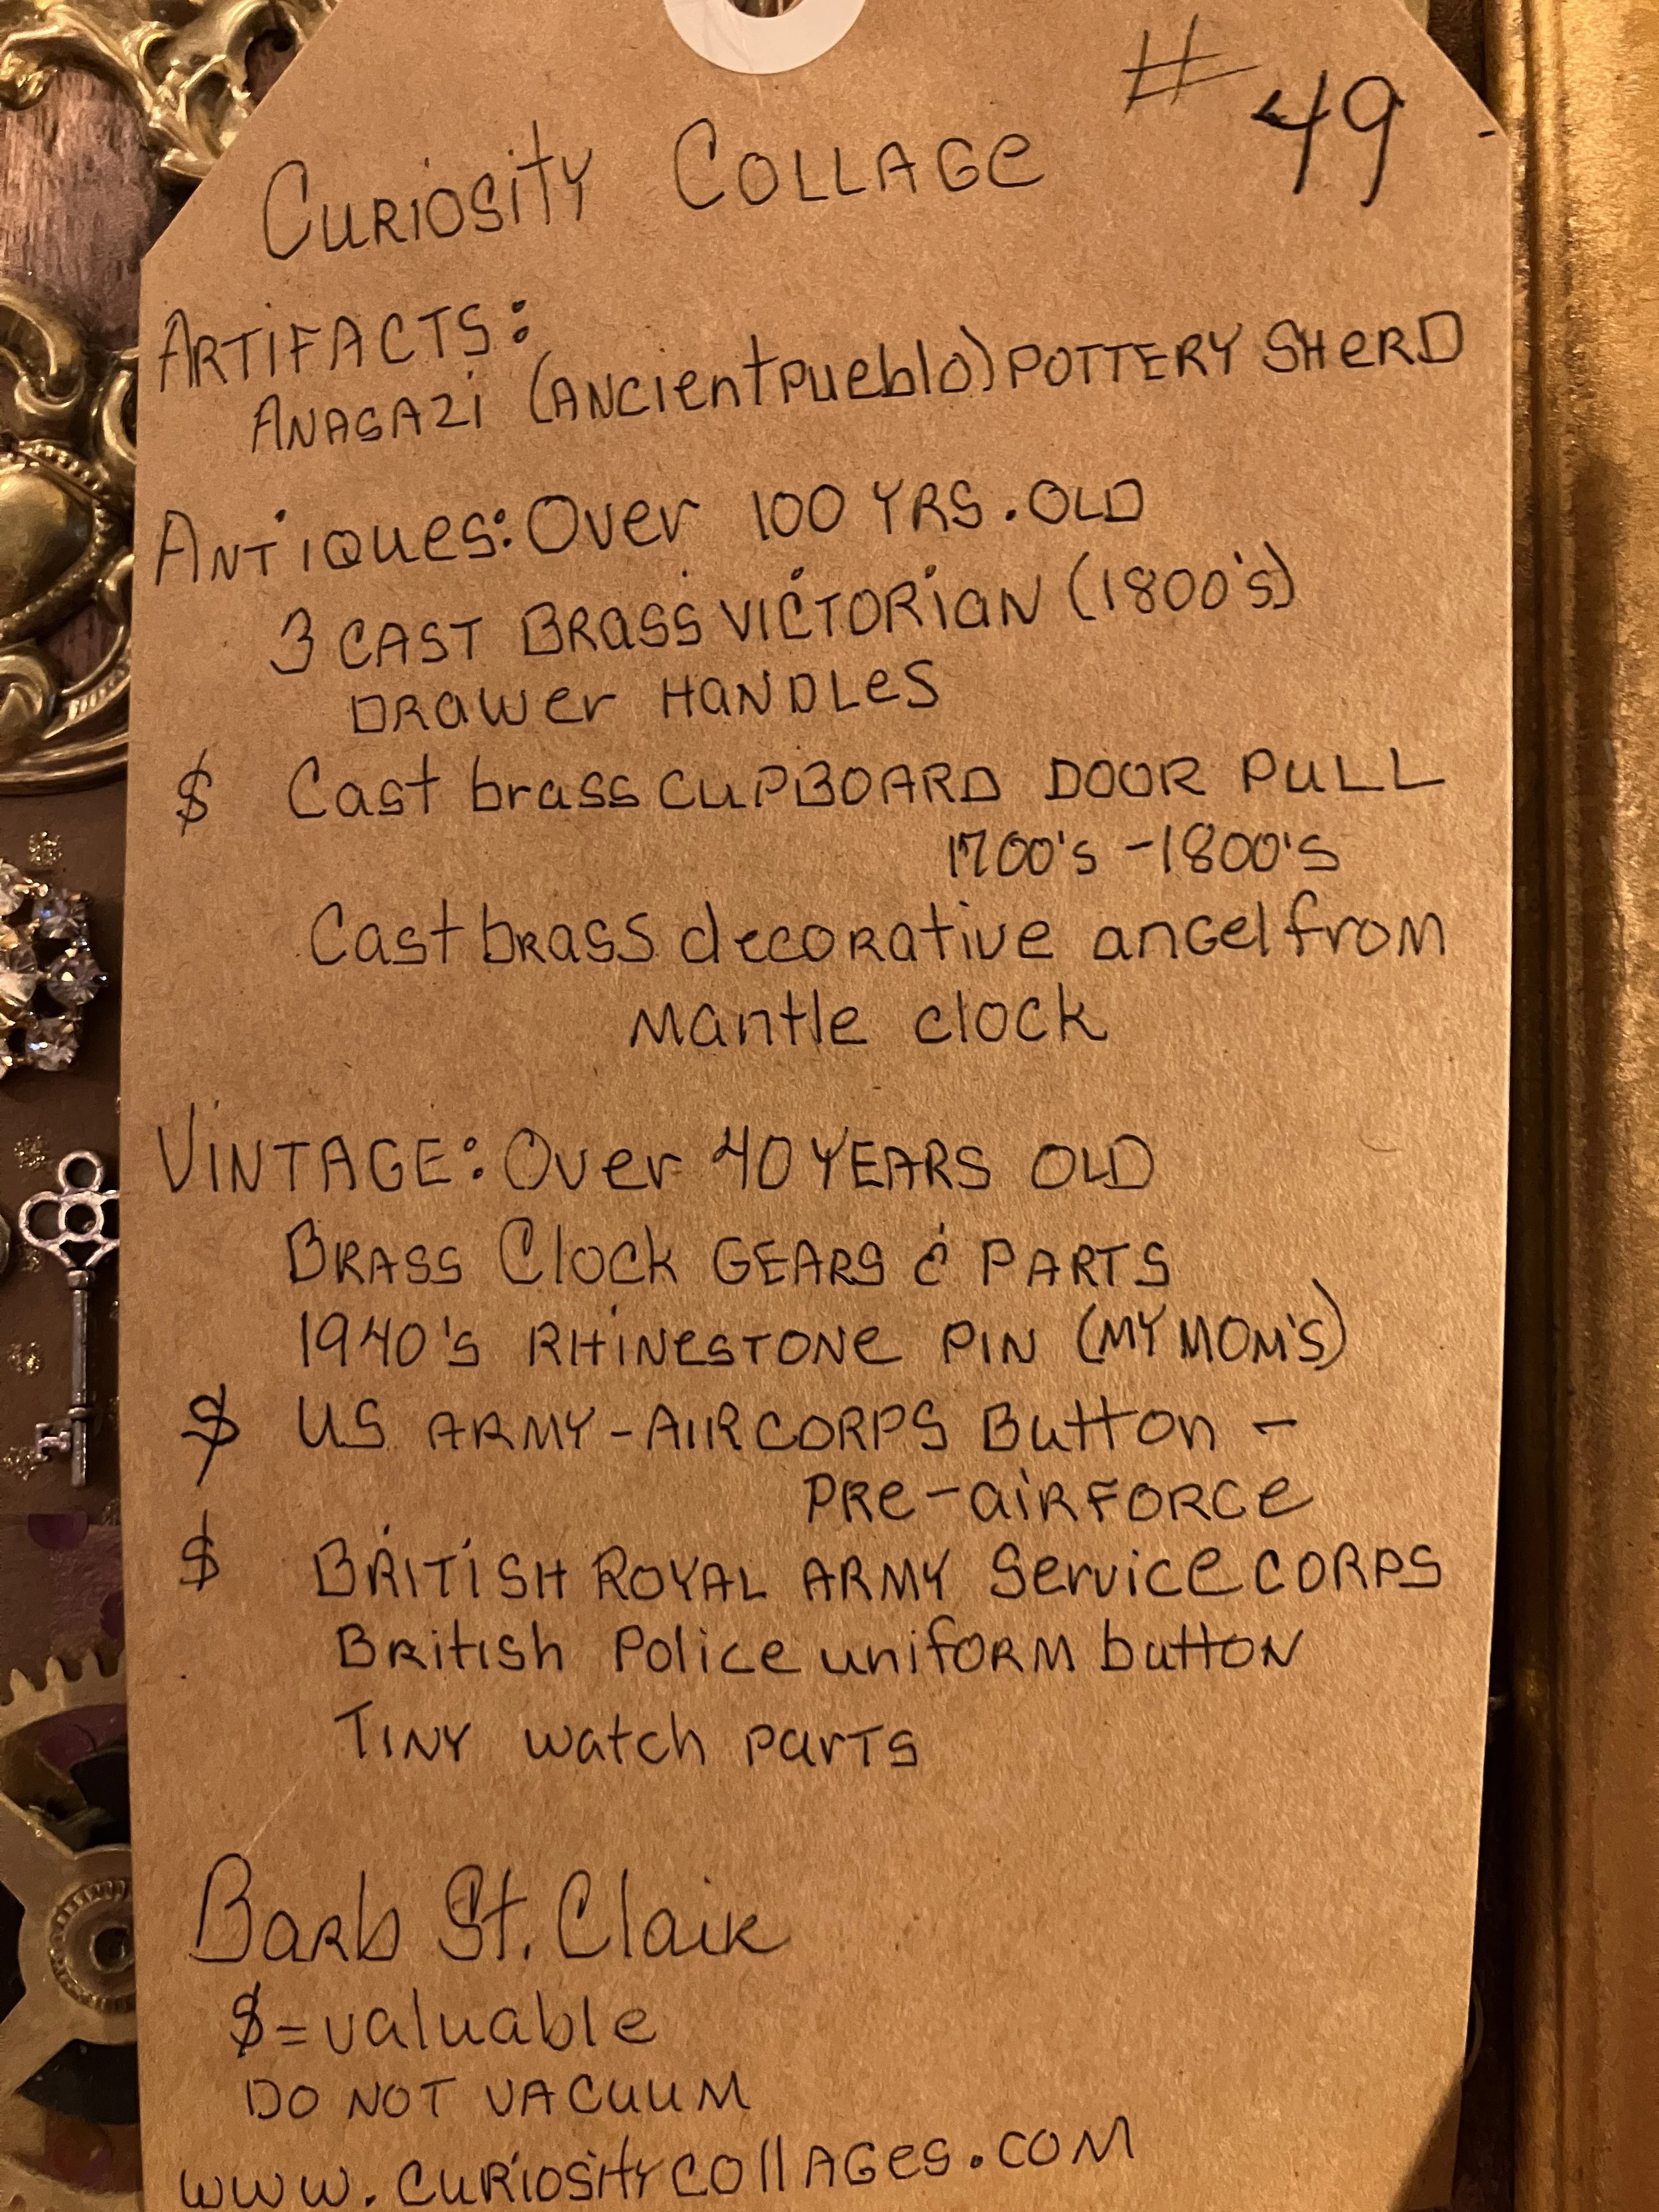 # 49
Curiosity Collage
Artifacts:
Anasazi (Ancient Pueblo) Pottery Sherd
Antiques: Over 100 yrs. old
3 Cast Brass Victorian (1800's)
Drawer Handles
$ Cast brass cupboard door pull
1700's - 1800's
Cast brass decorative angel from
mantle clock
Vintage: Over 40 years old
Brass Clock Gears & Parts
1940's Rhinestone pin (my mom's)
$ US Army - Air Corps Button -
Pre-air force
$ British Royal Army Service Corps
British Police uniform button
Tiny watch parts
Barb St. Clair
$ = valuable
Do not vacuum
www.curiositycollages.com